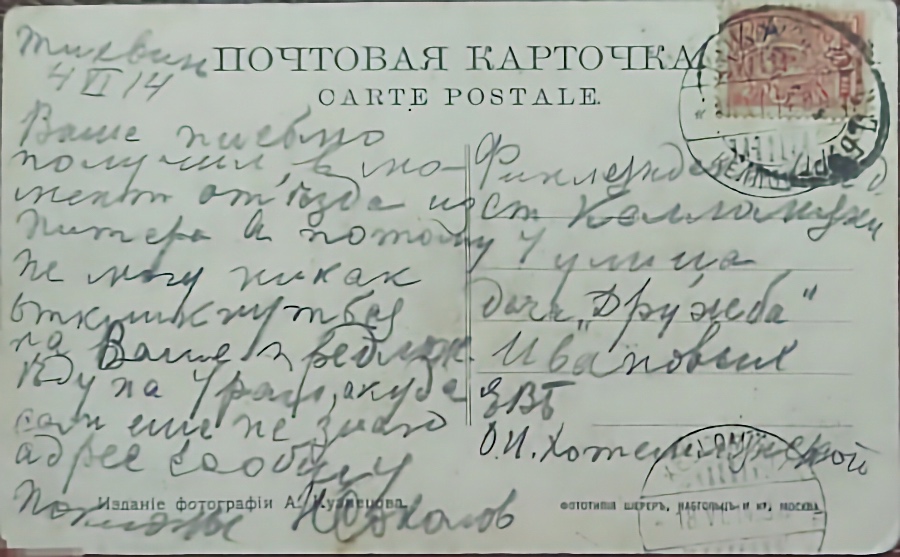 Тихвин
4 VI 14
ПОЧТОВАЯ КАРТОЧКА
CARTE POSTALE.
Ваше письмо
получил, в мо-
мент от'езда из
Питера а потому
не могу никак
откликнуться
на Ваше предлож.
Еду на Урал, а куда
сам еще не знаю
адрес сообщу
Н Соколов
ст Келломяки
7 улица
дача „Дружба"
Ивановых
ЕВБ
О.И.
Изданіе фотографіи А. Кузнецова.
ФОТОТИПІЯ ШЕРЕРЪ, НАБГОЛЬЦЪ И Кº, МОСКВА.